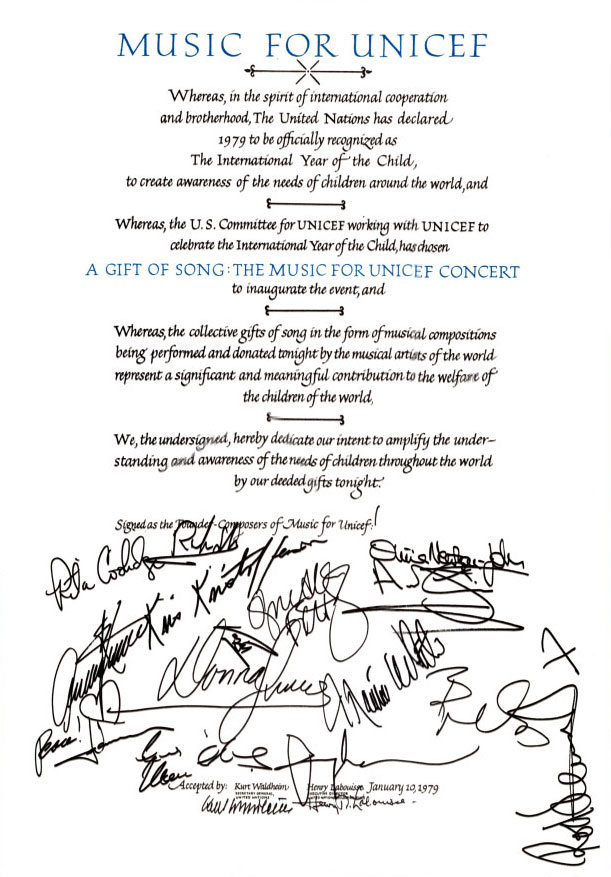 MUSIC FOR UNICEF
Whereas, in the spirit of international cooperation
and brotherhood, The United Nations has declared
1979 to be officially recognized as
The International Year of the Child,
to create awareness of the needs of children around the world, and
Whereas, the U.S. Committee for UNICEF working with UNICEF to
celebrate the International Year of the Child, has chosen
A GIFT OF SONG: THE MUSIC FOR UNICEF CONCERT
to inaugurate the event, and
Whereas, the collective gifts of song in the form of musical compositions
being performed and donated tonight by the musical artists of the world
represent a significant and meaningful contribution to the welfare of
the children of the world,
We, the undersigned, hereby dedicate our intent to amplify the under-
standing and awareness of the needs of children throughout the world
by our deeded gifts tonight.
Signed as the Founder-Composers of Music for Unicef:
Rita Coolidge
Kris Kristofferson
Olivia Newton-John
Donna
Maurice White
Peace!
Accepted by: Kurt Waldheim Henry Labouisse January 10, 1979
SECRETARY GENERAL, EXECUTIVE DIRECTOR
UNITED NATIONS